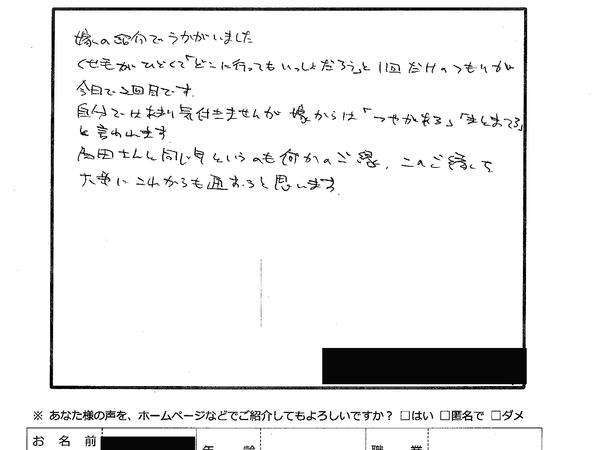 嫁の紹介でうかがいました
くせ毛がひどくて「どこに行ってもいっしょだろう」と1回だけのつもりが
今日で2回目です。
自分ではあまり気付きませんが 嫁からは「つやがある」「まとまってる」
と言われます
高田さんと同じ年というのも何かのご縁、このご縁を
大事にこれからも通おうと思います。
※ あなた様の声を、ホームページなどでご紹介してもよろしいですか? □はい □匿名で □ダメ
お 名 前 年 齢 職 業